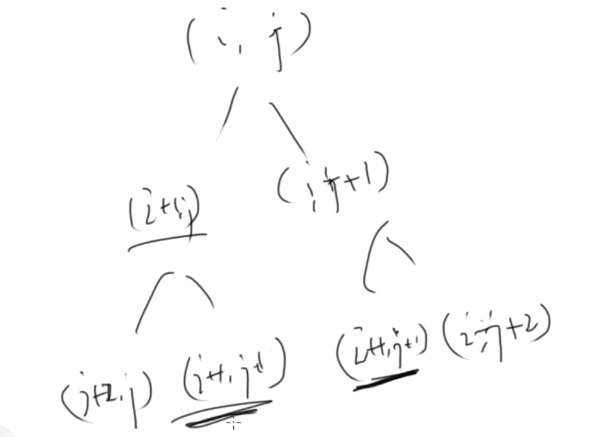 (i, j)
(i+1, j) (i, j+1)
(i+2, j) (i+1, j+1) (i+1, j+1) (i, j+2)